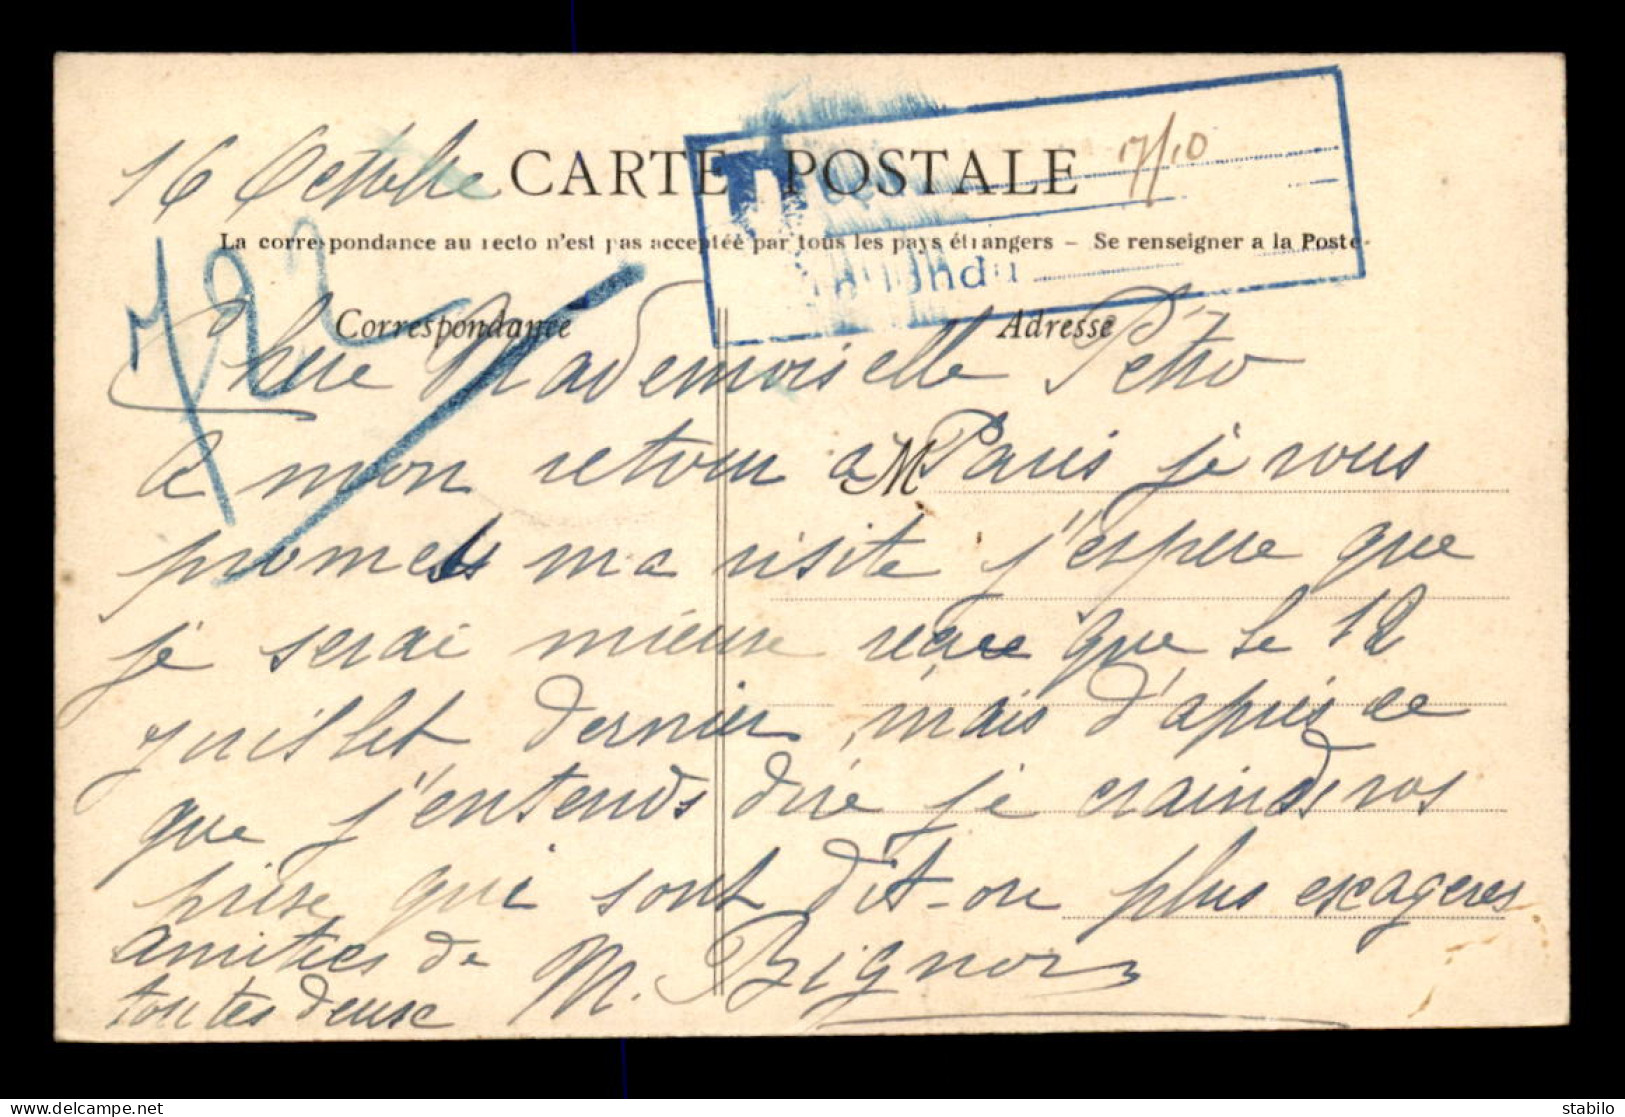 16 Octobre
CARTE POSTALE
17/10
La correspondance au recto n'est pas acceptée par tous les pays étrangers - Se renseigner a la Poste
Répondu
792
Correspondance
Adresse
Chere Mademoiselle Petro
M
a mon retour a Paris je vous
promets ma visite j'espere que
je serai mieuse reçue que le 12
juillet dernier, mais d'après ce
que j'entends dire je crains vos
prise qui sont dit-on plus exageres
amities de
toutes deuse
M. Bignon
stabilo
delcampe.net